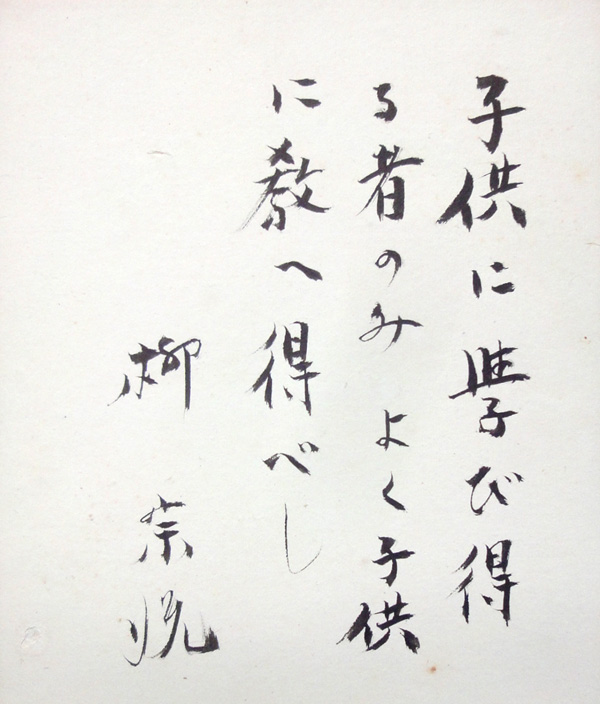 子供に學び得
る者のみよく子供
に教へ得べし
柳宗悦